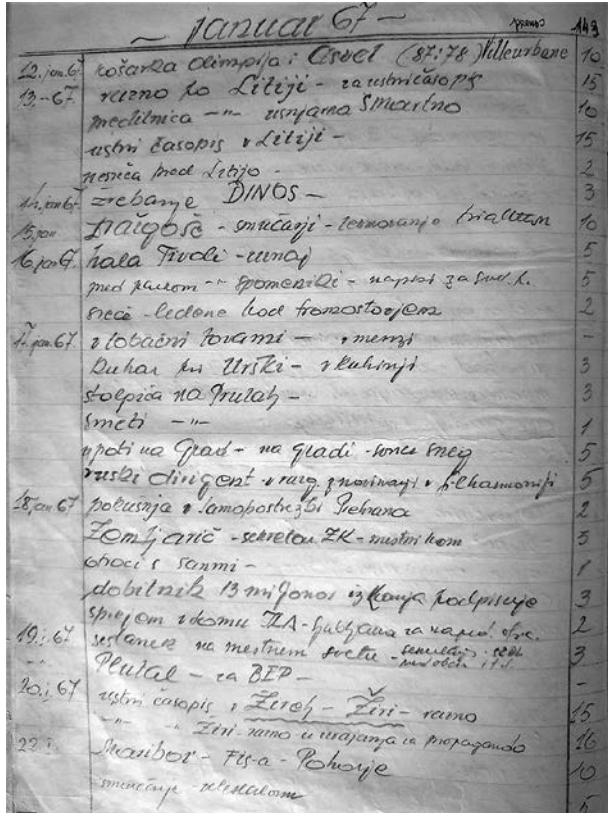 januar 67 -
prenos 149
12. jan. 67 košarka Olimpija : Asvel (87:78) Villeurbane 10
13.-- 67 razno po Litiji - za ustni časopis 15
predilnica -"- usnjarna Šmartno 10
ustni časopis v Litiji - 15
nesreča pred Litijo - 2
14. jan 67. žrebanje DINOS - 3
15. jan Dražgoše - smučarji - tekmovanje 10
16. jan 67. hala Tivoli - zunaj 5
pred parkom -"- spomeniki - napisi za 5
sveče - ledene pod 2
17. jan. 67 v tobačni tovarni - v menzi -
kuhar pri Urški - v kuhinji 3
stolpiča na Prulah - 3
smeti -"- 1
v poti na Grad - na gradi - sonce sneg 5
ruski dirigent v razg. z novinarji v filharmoniji 5
18. jan 67 pokušnja v samopostrežbi Prehrana 2
Zemljarič - sekretar ZK - mestni kom 5
otroci s sanmi - 1
dobitnik 13 miljonov iz Kranja podpisuje 3
sprejem v domu JLA - Ljubljana za 2
19. i. 67 sestanek na mestnem svetu - 3
-"- Plutal - za BEP - -
20. i. 67 ustni časopis v Žireh - Žiri - razno 15
-"- -"- Žiri - razno iz propagando 16
22. i. Maribor - Fis-a - Pohorje 10
smučanje - veleslalom 5